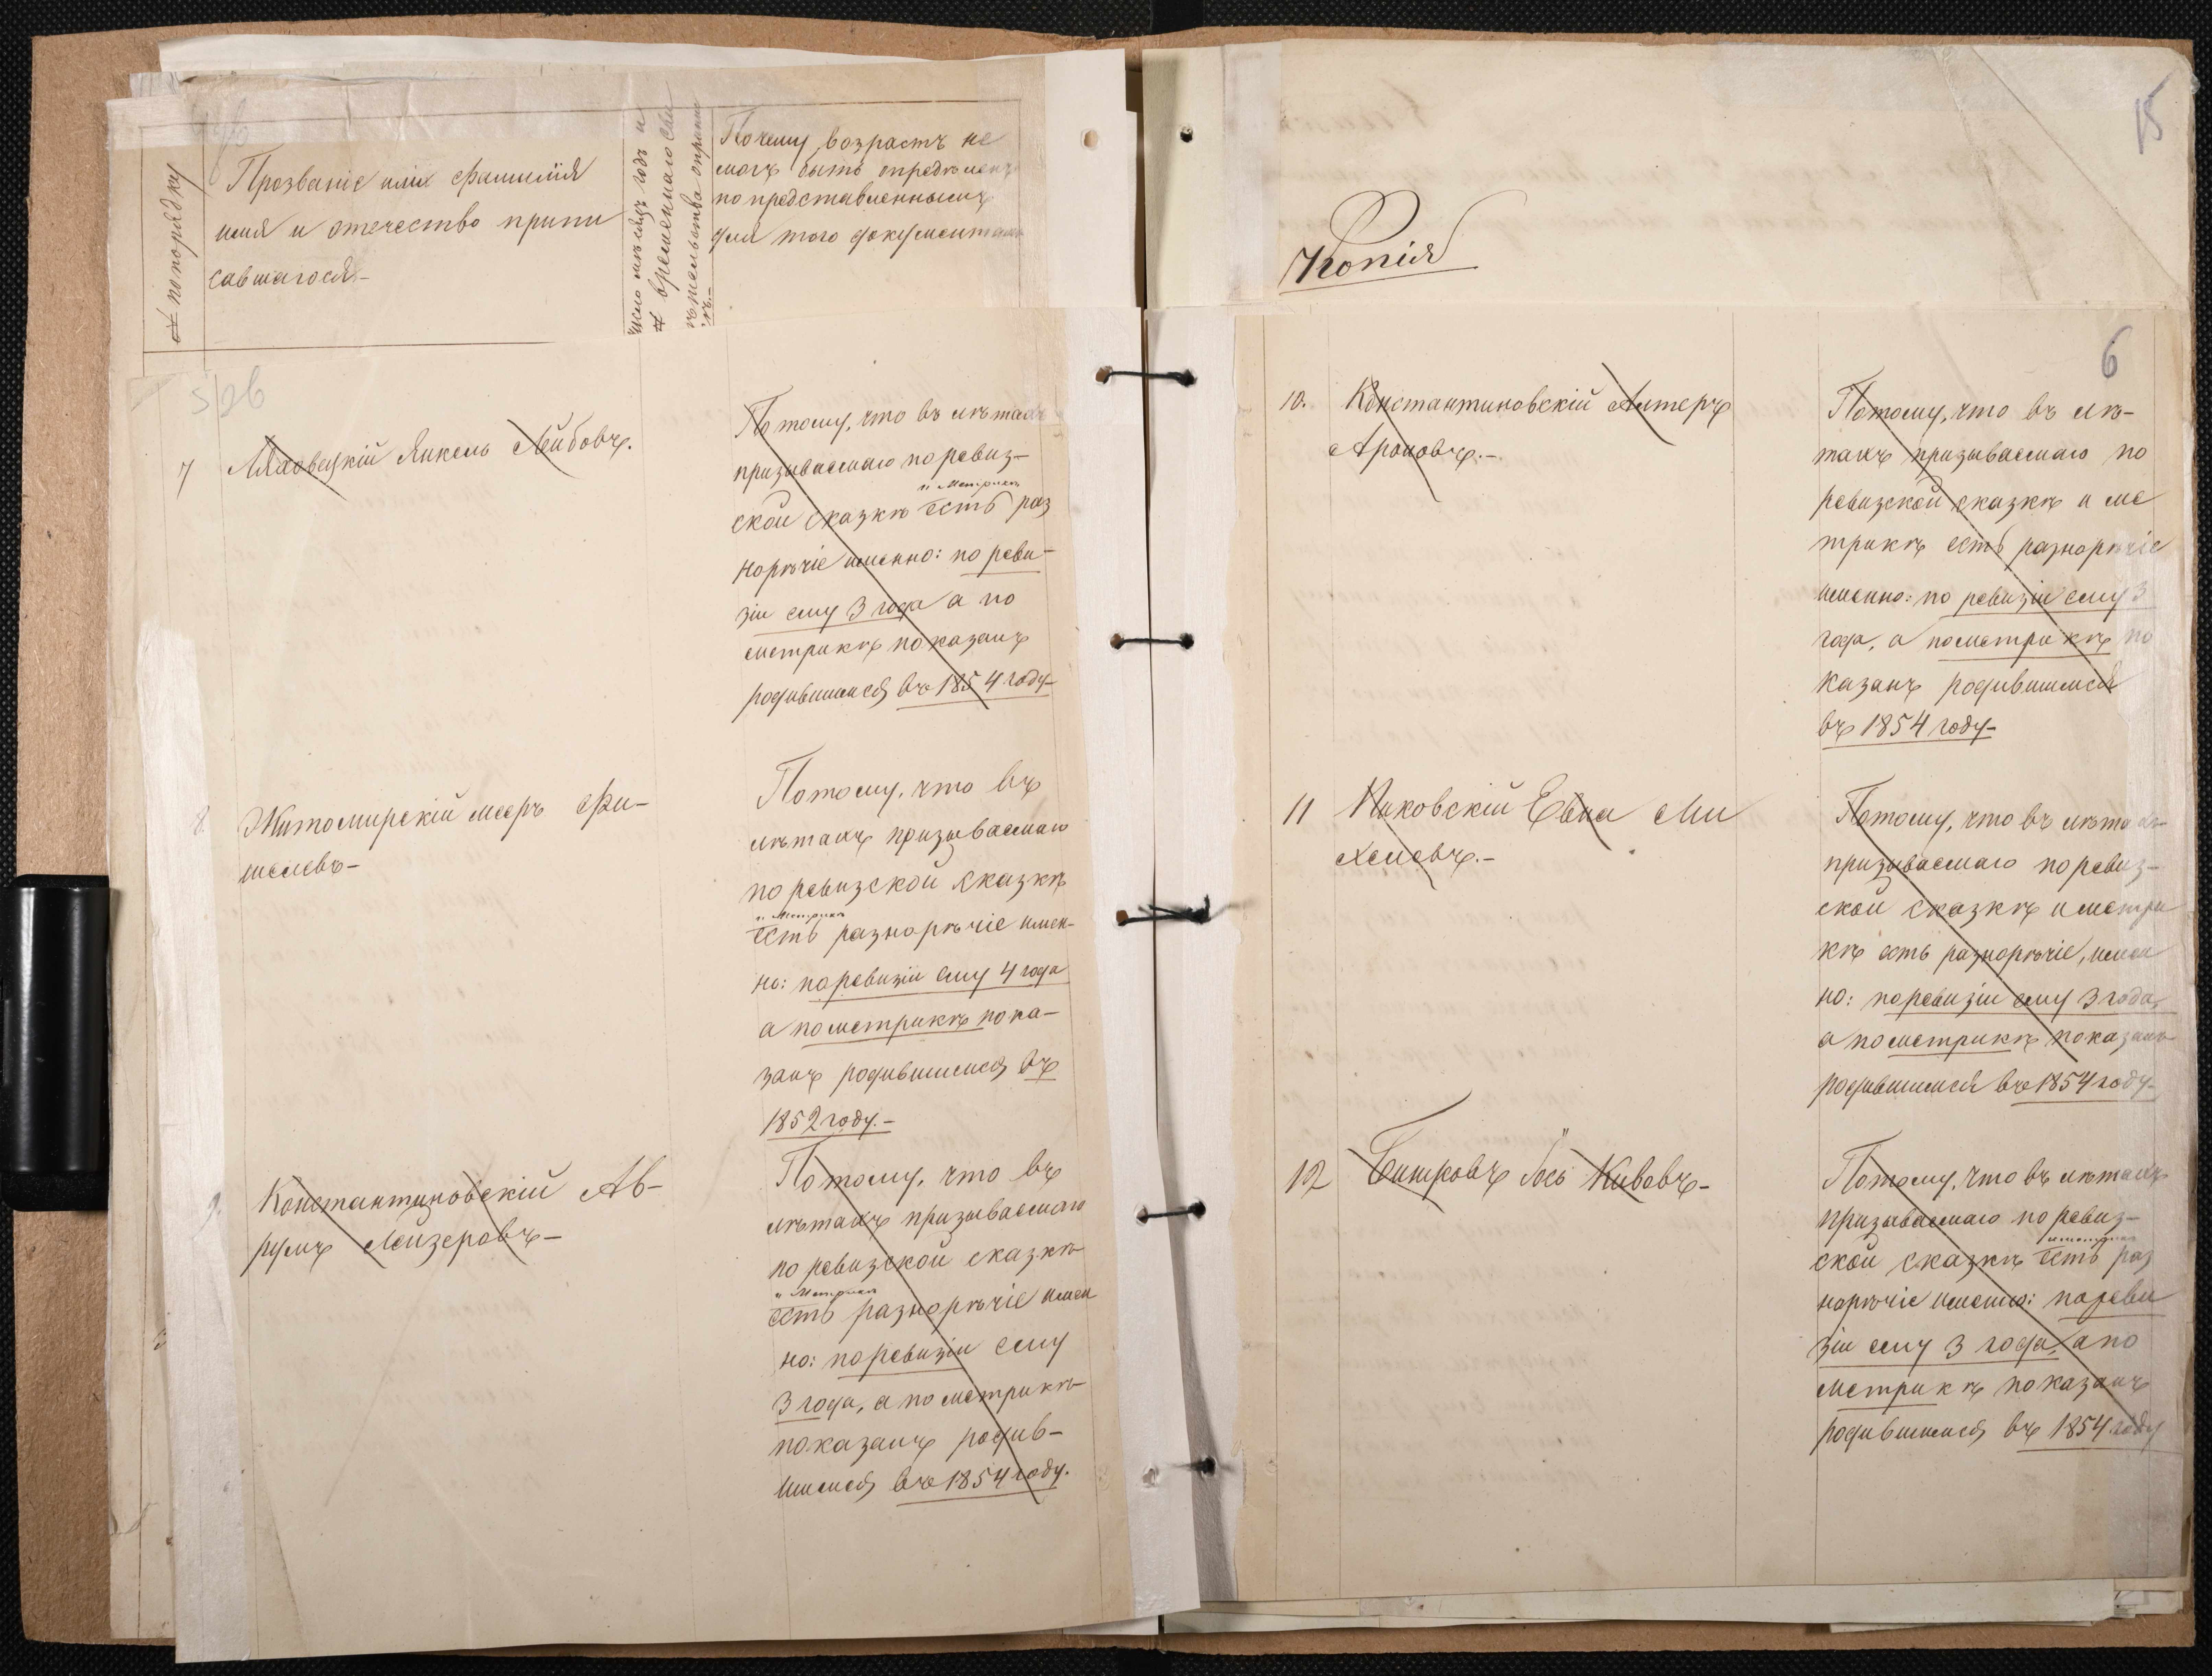 № по порядку
Прозваніе или фамилія
имя и отечество припи
савшагося.-
Число мѣсяцъ годъ и
№ временнаго сви
Почему возрастъ не
могъ быть опредѣленъ
по представленнымъ
для того документамъ
5 об
7
Яанкель Лейбовъ.
Потому, что въ лѣтахъ
призываемаго по ревиз-
ской сказкѣ и Метрикѣ есть раз
норѣчіе именно: по реви-
зіи ему 3 года а по
метрикѣ показанъ
родившимся въ 1854 году-
8.
Житомирскій Мееръ Фи-
шелевъ-
Потому, что въ
лѣтахъ призываемаго
по ревизской сказкѣ
и Метрикѣ
есть разнорѣчіе имен-
но: по ревизіи ему 4 года
а по метрикѣ пока-
занъ родившимся въ
1852 году.-
9.
Константиновскій Аб-
румъ Лейзеровъ-
Потому, что въ
лѣтахъ призываемаго
по ревизской сказкѣ
и Метрикѣ
есть разнорѣчіе имен
но: по ревизіи ему
3 года, а по метрикѣ
показанъ родив-
шимся въ 1854 году.
15
Копія
6
10.
Константиновскій Алтеръ
Ароновъ.-
Потому, что въ лѣ-
тахъ призываемаго по
ревизской сказкѣ и ме
трикѣ есть разнорѣчіе
именно: по ревизіи ему 3
года, а по метрикѣ по
казанъ родившимся
въ 1854 году-
11
Евна Ми
хелевъ.-
Потому, что въ лѣтахъ
призываемаго по ревиз-
ской сказкѣ и метри
кѣ есть разнорѣчіе, имен
но: по ревизіи ему 3 года,
а по метрикѣ показанъ
родившимся въ 1854 году-
12
Іось Кивовъ-
Потому, что въ лѣтахъ
призываемаго по ревиз-
и метрикѣ
ской сказкѣ есть раз
норѣчіе именно: по реви
зіи ему 3 года, а по
метрикѣ показанъ
родившимся въ 1854 году